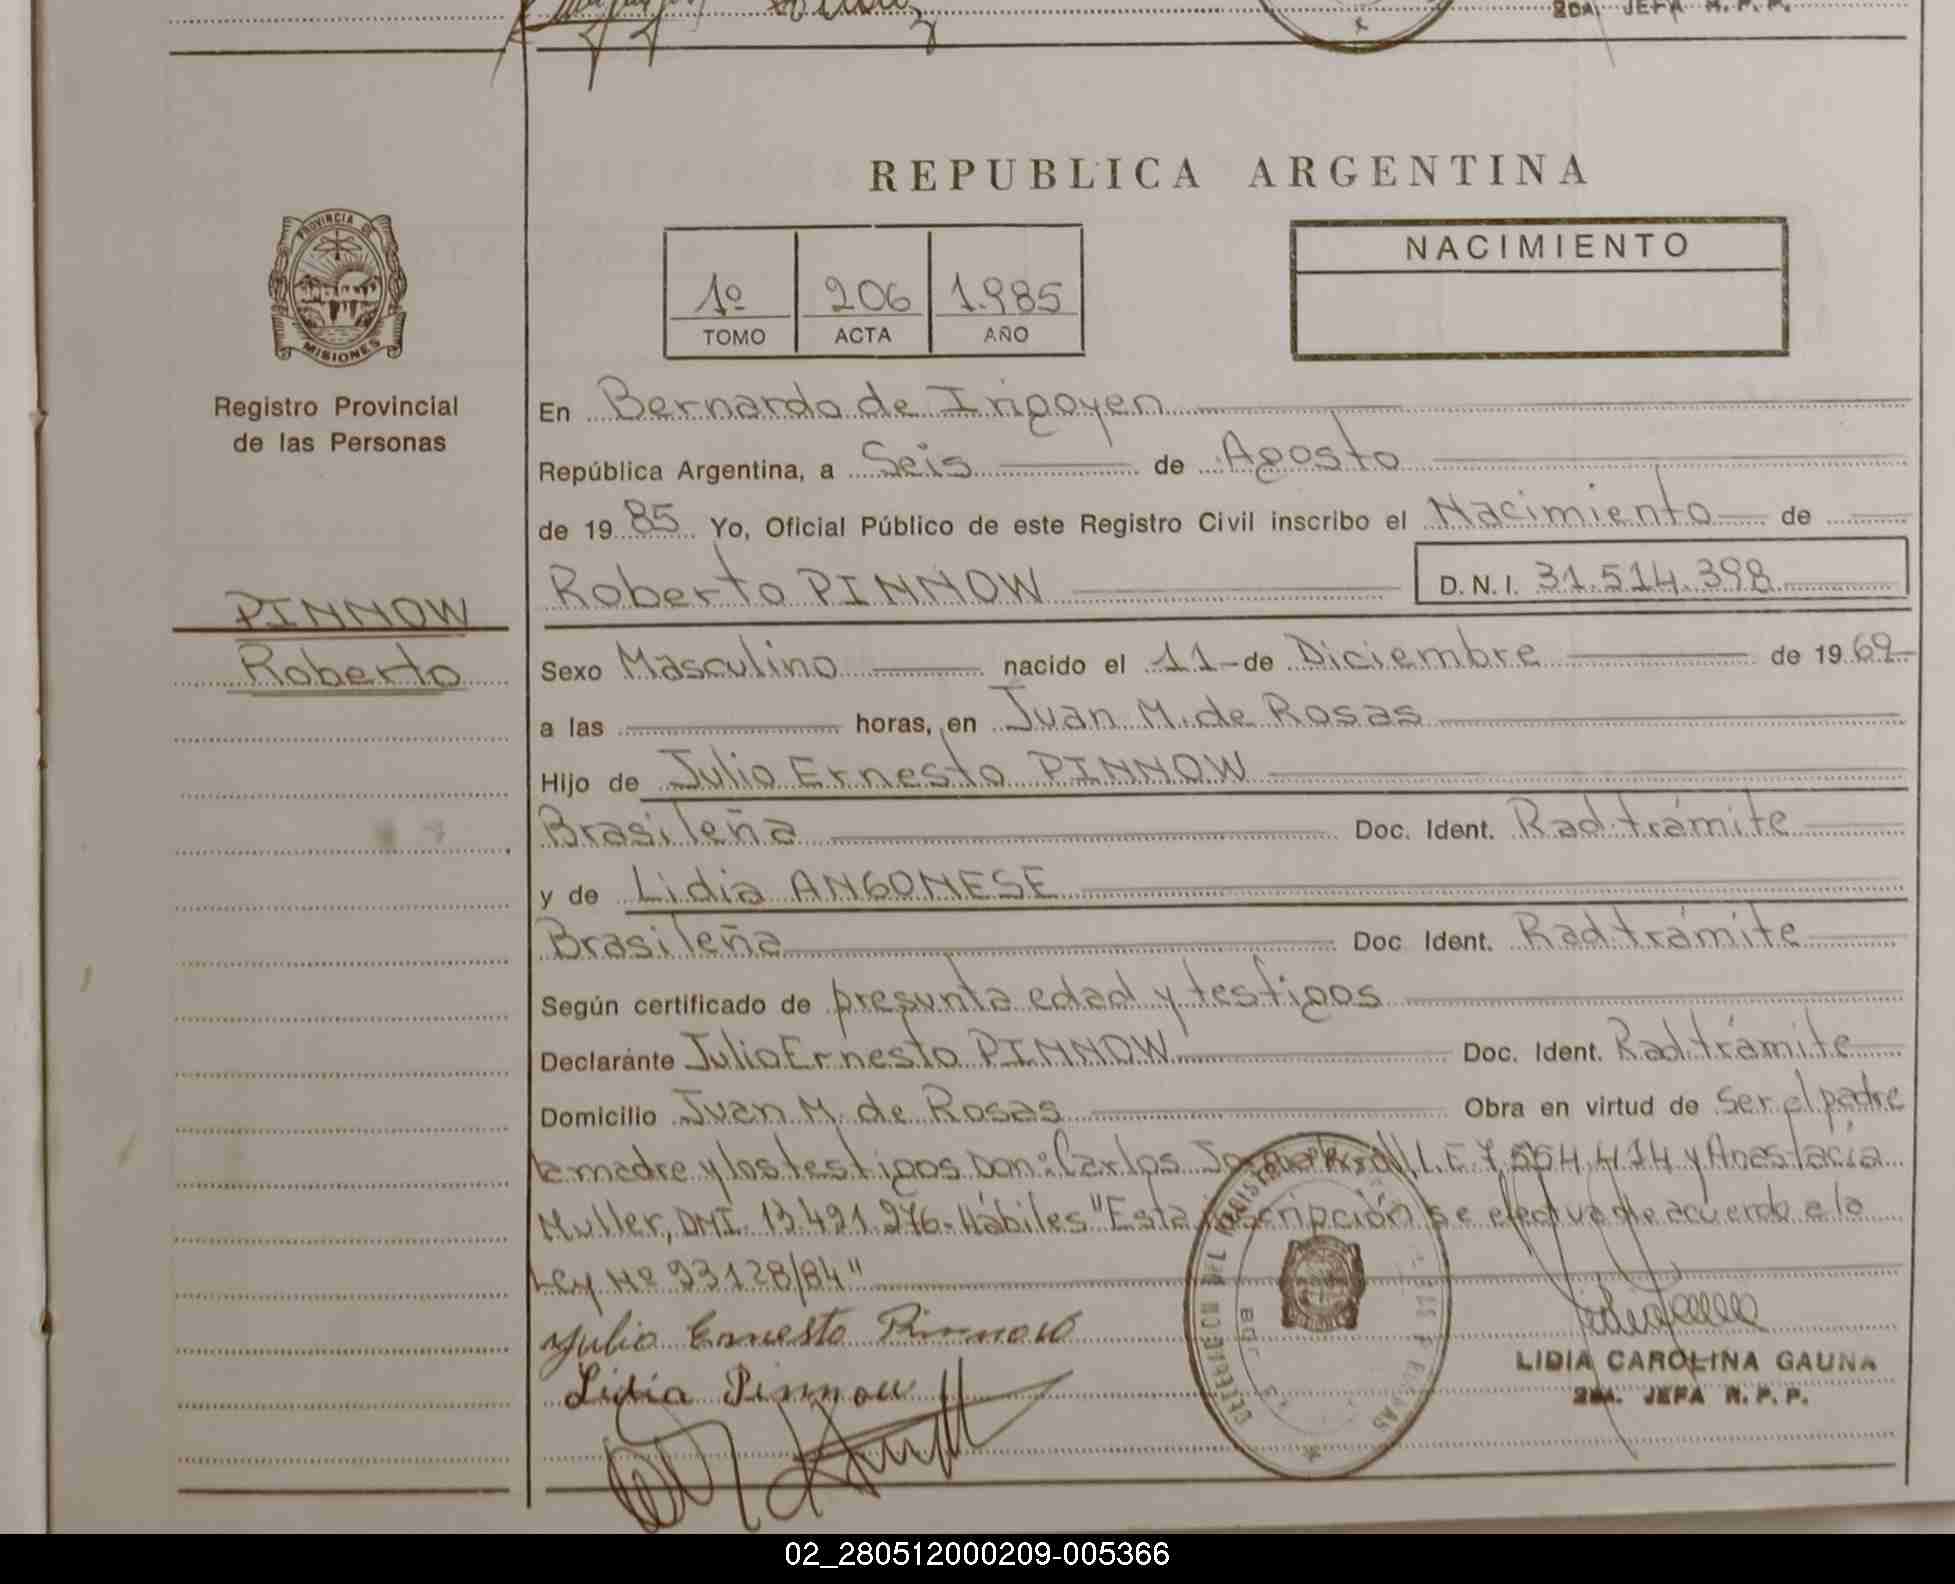 2DA. JEFA R. P. P.
REPUBLICA ARGENTINA
PROVINCIA DE
MISIONES
Registro Provincial
de las Personas
1º 206 1.985
TOMO ACTA AÑO
NACIMIENTO
PINNOW
Roberto
En Bernardo de Irigoyen
República Argentina, a Seis de Agosto
de 19 85 Yo, Oficial Público de este Registro Civil inscribo el Nacimiento de
Roberto PINNOW D. N. I. 31.514.398
Sexo Masculino nacido el 11 de Diciembre de 19 69
a las horas, en Juan M. de Rosas
Hijo de Julio Ernesto PINNOW
Brasileña Doc. Ident. Rad. trámite
y de Lidia ANGONESE
Brasileña Doc Ident. Rad. trámite
Según certificado de presunta edad y testigos
Declarante Julio Ernesto PINNOW Doc. Ident. Rad. trámite
Domicilio Juan M. de Rosas Obra en virtud de Ser el padre
la madre y los testigos Don: Carlos L.E. 7.554.414 y Anastacia
Muller, DNI. 13.491.276. Hábiles "Esta inscripción se efectua de acuerdo a la
Ley Nº 23128/84"
Julio Ernesto Pinnow
Lidia Pinnow
LIDIA CAROLINA GAUNA
2DA. JEFA R. P. P.
02_280512000209-005366